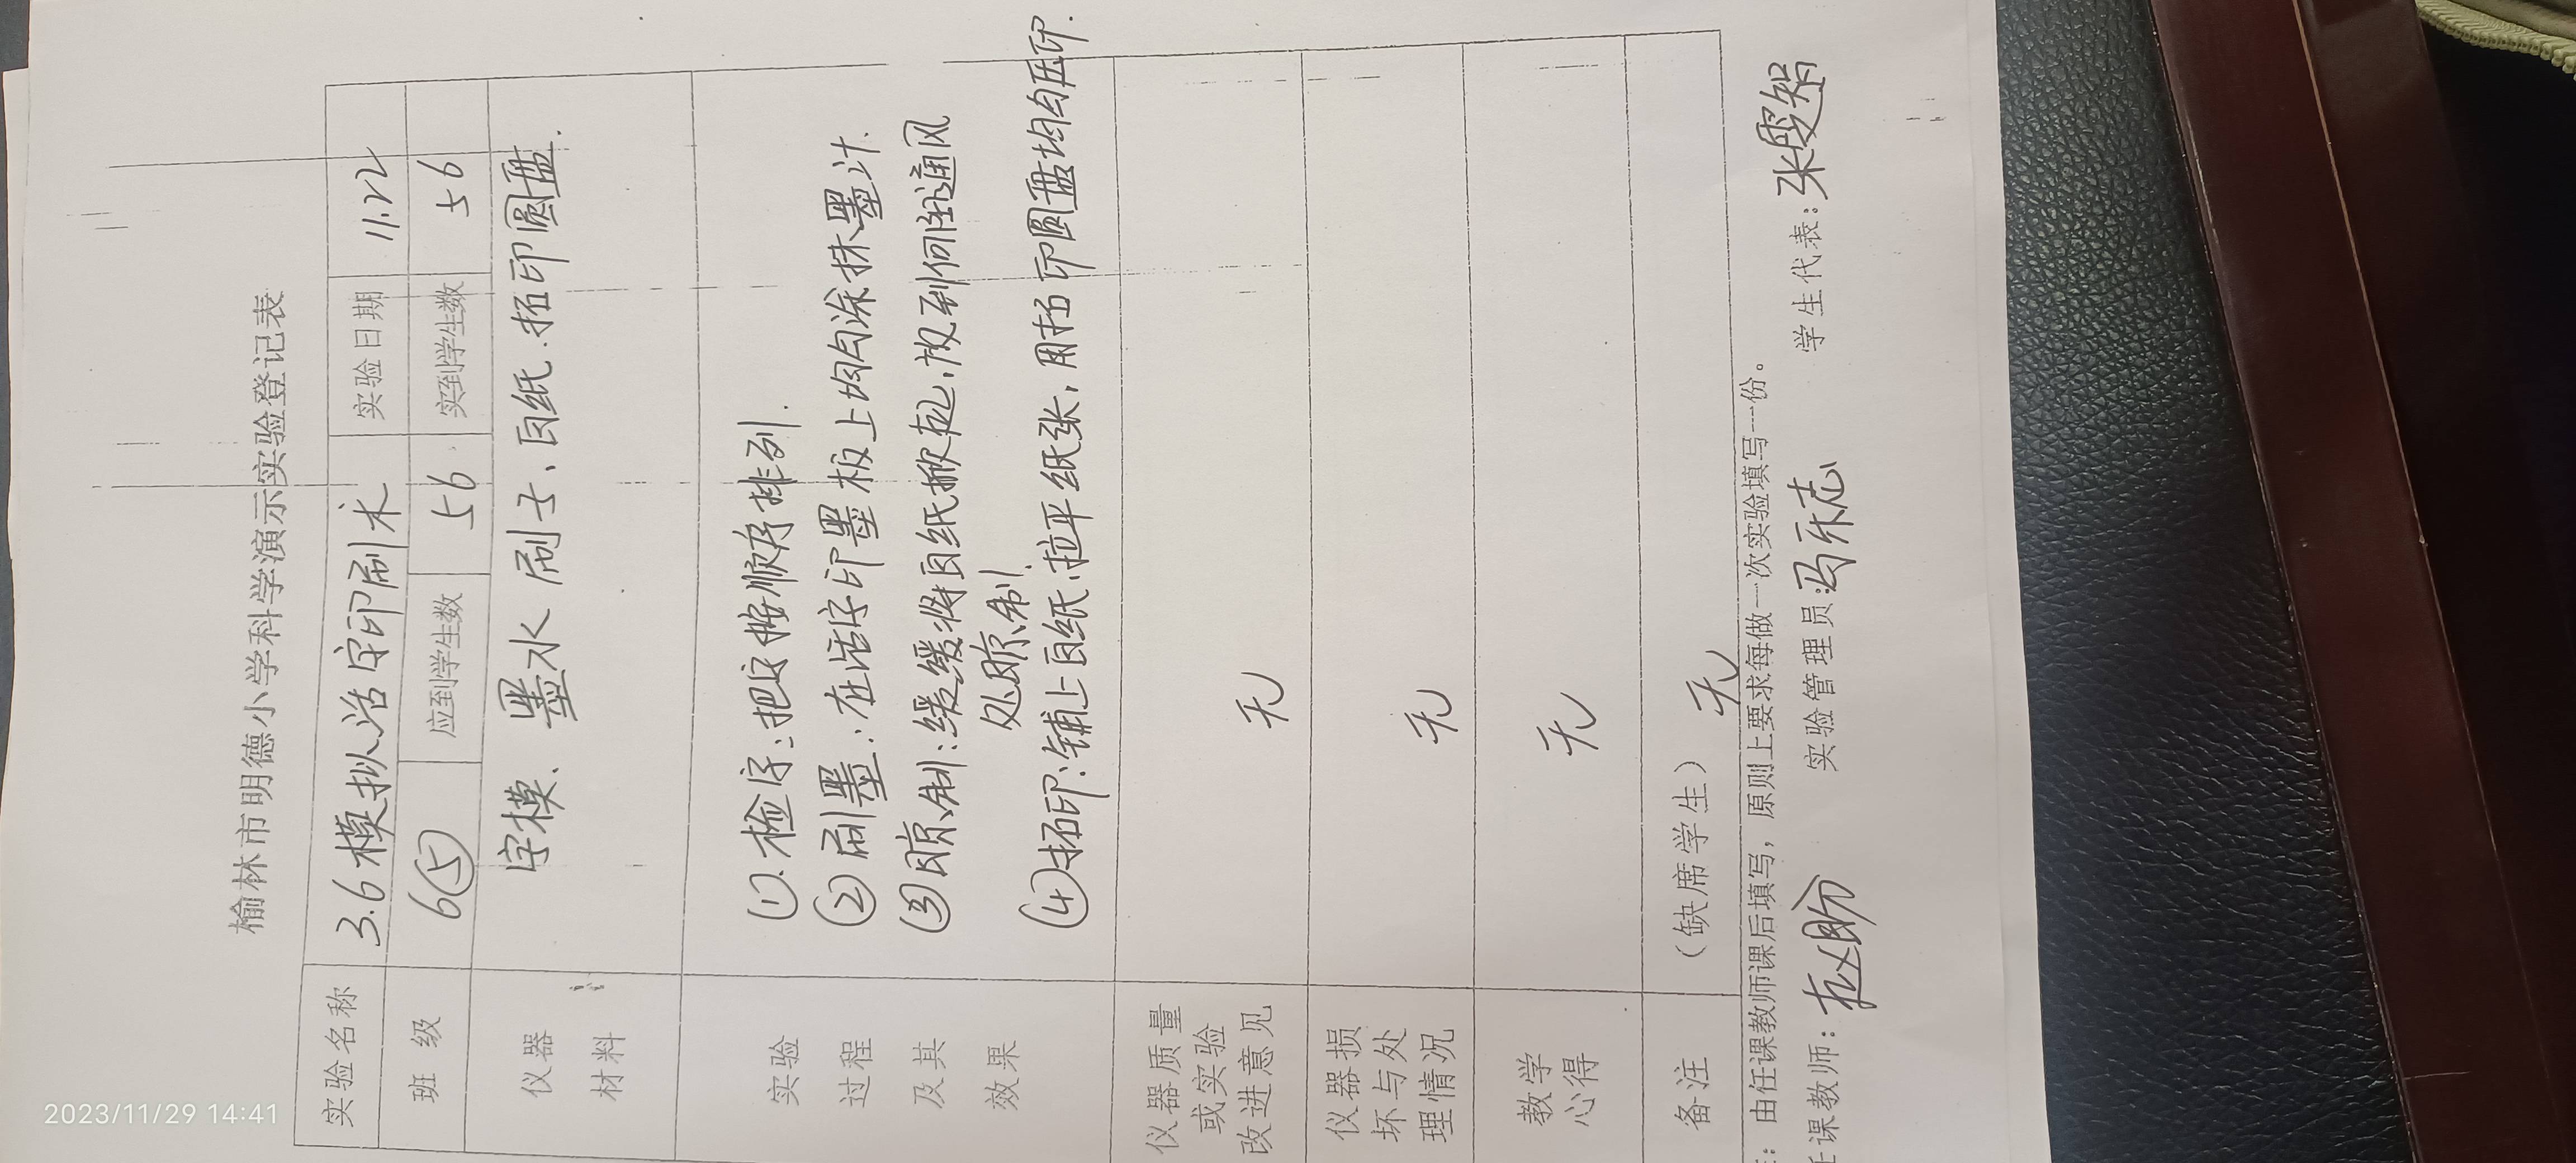 榆林市明德小学科学演示实验登记表
实验名称 3.6模拟活字印刷术 实验日期 11.22
班级 6(5) 应到学生数 56 实到学生数 56
仪器 字模、墨水 刷子、白纸、拓印圆盘.
材料
实验 (1).检字:把字按顺序排列.
过程 (2)刷墨:在活字印墨板上均匀涂抹墨汁.
及其 (3)晾制:缓缓将白纸掀起,放到 通风
效果 处晾制.
(4)拓印:铺上白纸,拉平纸张,用拓印圆盘均匀压印.
仪器质量
或实验 无
改进意见
仪器损
坏与处 无
理情况
教学 无
心得
备注 (缺席学生) 无
:由任课教师课后填写,原则上要求每做一次实验填写一份。
任课教师: 赵盼 实验管理员:冯乐志 学生代表:张雯智
2023/11/29 14:41